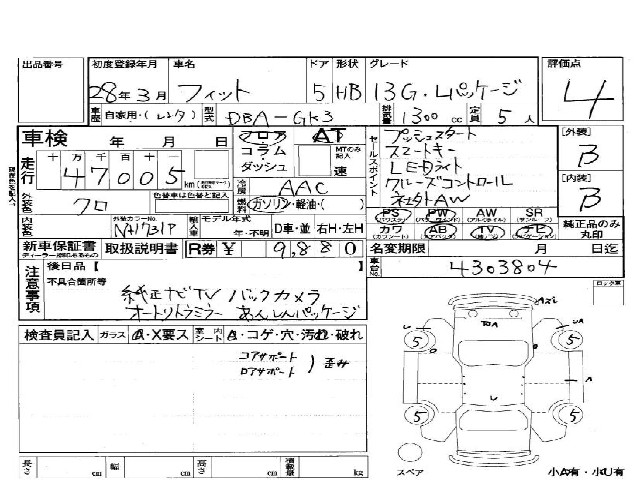 出品番号 初度登録年月 車名 ドア 形状 グレード 評価点
28年3月 フィット 5 HB 13G・Lパッケージ 4
車歴 自家用・(レンタ) 型式 DBA-GK3 排気量 1300 cc 定員 5 人
車検 年 月 日 フロア AT セールスポイント プッシュスタート [外装]
コラム・ダッシュ MTのみ記入 速 スマートキー B
走行 十 万 千 百 十 一 LEDライト
47005 km 冷房 AAC クルーズコントロール [内装]
外装色 クロ 色替車は色替と記入 燃料 ガソリン・軽油・( ) 社外AW B
PS PW AW SR
内装色 外装カラーNo. NH731P 輸入車 モデル年式 年・不明 D車・並 右H・左H カワ AB TV ナビ 純正品のみ丸印
新車保証書 取扱説明書 R券 ¥ 9,880 名変期限 月 日迄
注意事項 後日品【 車台No. 4303804
不具合箇所等
純正ナビTV バックカメラ
オートリトラミラー あんしんパッケージ
検査員記入 ガラス A・X要ス 室内シート A・コゲ・穴・汚れ・破れ
コアサポート
ロアサポート )歪み
長さ cm 幅 cm 高さ cm 積載量 kg
5 5
5 5
スペア 小A有・小U有